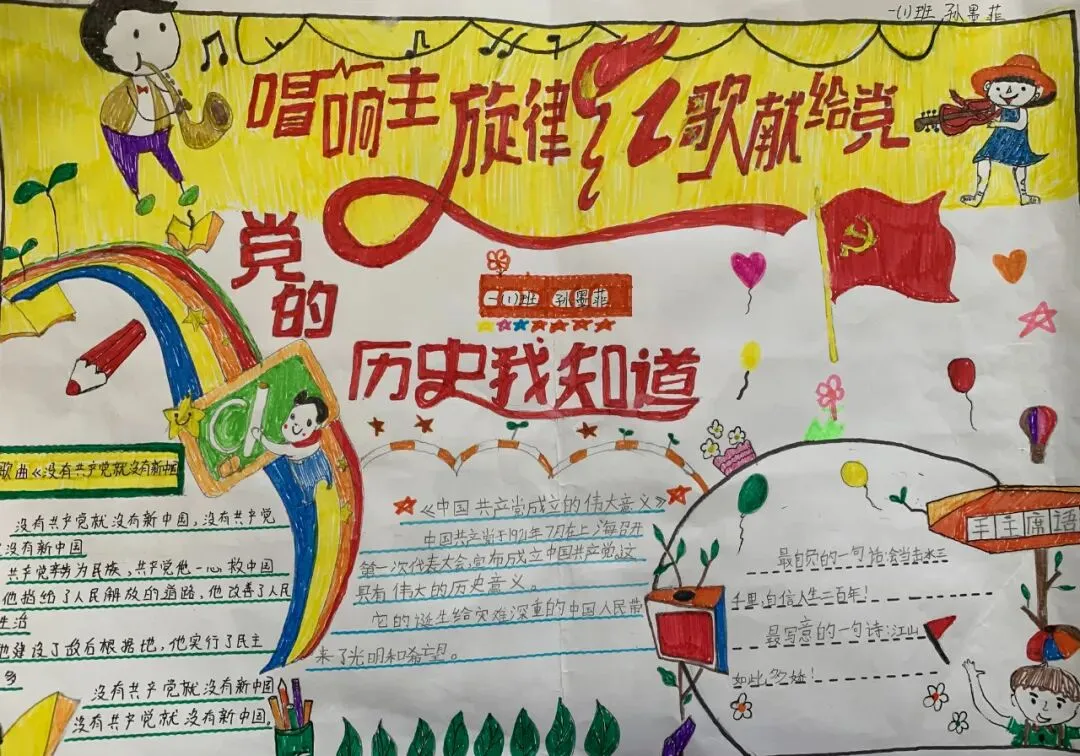 一(1)班 孙墨菲
唱响主旋律 红歌献给党
党的
历史我知道
一(1)班 孙墨菲
歌曲《没有共产党就没有新中国
没有共产党就没有新中国，没有共产党
没有新中国
共产党辛劳为民族，共产党他一心救中国
他指给了人民解放的道路，他改善了人民
生活
他建设了敌后根据地，他实行了民主
多
没有共产党就没有新中国
没有共产党就没有新中国。
《中国共产党成立的伟大意义》
中国共产党于1921年7月在上海召开
第一次代表大会,宣布成立中国共产党,这
具有伟大的历史意义。
它的诞生给灾难深重的中国人民带
来了光明和希望。
主席语
最自负的一句话:会当击水三
千里,自信人生二百年！
最写意的一句诗:江山
如此多娇！